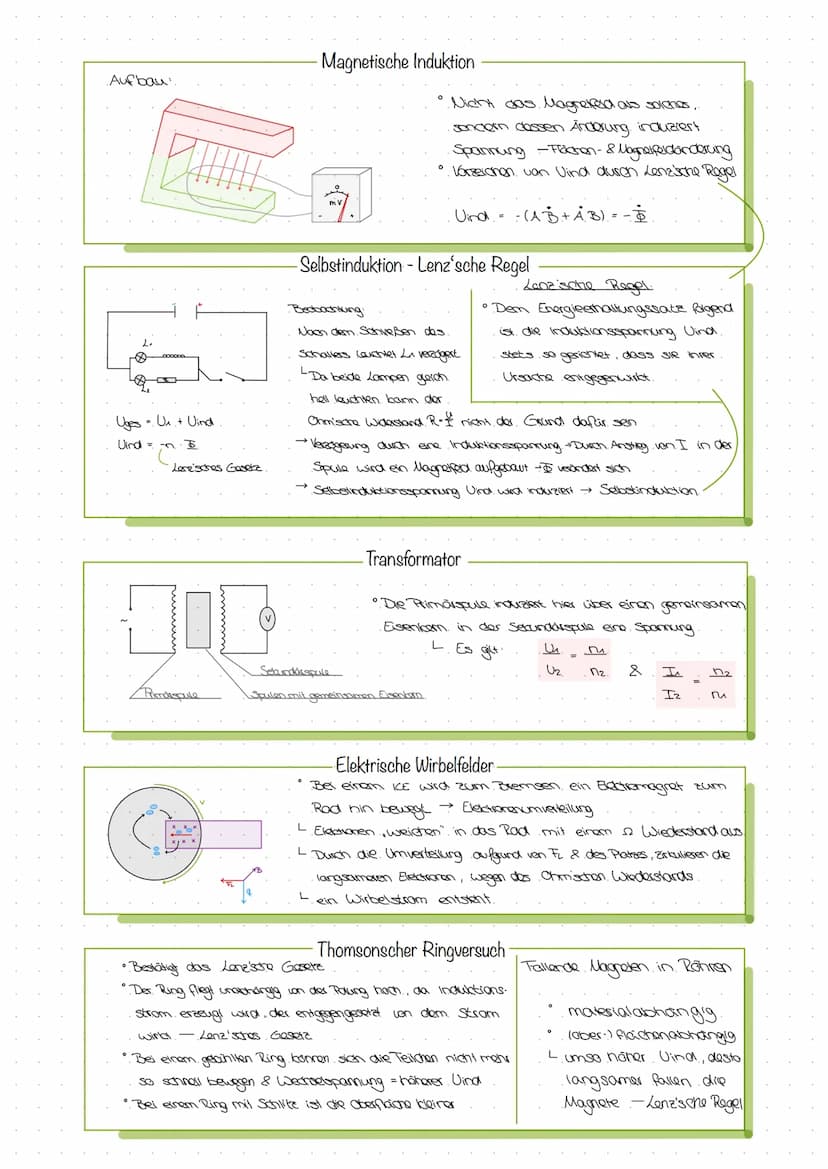 Magnetische Induktion
Aufbau:
mV
° Nicht das Magnetfeld als solches,
sondern dessen Änderung induziert
Spannung – Flächen- & Magnetfeldänderung
° Vorzeichen von Uind durch Lenz'sche Regel
Uind = -(A Ḃ + Ȧ B) = - Φ̇
Selbstinduktion - Lenz'sche Regel
- +
L₁
L₂
Uges = U₁ + Uind
Uind = -n · Φ̇
Lenz'sches Gesetz
Beobachtung:
Nach dem Schließen des
Schalters leuchtet L₁ verzögert
└ Da beide Lampen gleich
hell leuchten kann der
Ohmsche Widerstand R = U/I nicht der Grund dafür sein
→ Verzögerung durch eine Induktionsspannung → Durch Anstieg von I in der
Spule wird ein Magnetfeld aufgebaut – Φ verändert sich
→ Selbstinduktionsspannung Uind wird induziert → Selbstinduktion
Lenz'sche Regel:
° Dem Energieerhaltungssatz folgend
ist die Induktionsspannung Uind
stets so gerichtet, dass sie ihrer
Ursache entgegenwirkt.
Transformator
~
V
Primärspule
Sekundärspule
Spulen mit gemeinsamen Eisenkern
° Die Primärspule induziert hier über einen gemeinsamen
Eisenkern in der Sekundärspule eine Spannung
└ Es gilt: U₁/U₂ = n₁/n₂ & I₁/I₂ = n₂/n₁
Elektrische Wirbelfelder
v
FL
B
° Bei einem ICE wird zum Bremsen ein Elektromagnet zum
Rad hin bewegt → Elektronenumverteilung
└ Elektronen „weichen" in das Rad mit einem Ω Wiederstand aus
└ Durch die Umverteilung aufgrund von FL & des Platzes, zirkulieren die
langsameren Elektronen, wegen des Ohmschen Wiederstands
└ ein Wirbelstrom entsteht.
Thomsonscher Ringversuch
° Bestätigt das Lenz'sche Gesetz
° Der Ring fliegt unabhängig von der Polung hoch, da Induktions-
strom erzeugt wird, der entgegengesetzt von dem Strom
wirkt – Lenz'sches Gesetz
° Bei einem gekühlten Ring können sich die Teilchen nicht mehr
so schnell bewegen & Wechselspannung = höherer Uind
° Bei einem Ring mit Schlitz ist die Oberfläche kleiner
Fallende Magneten in Röhren
° materialabhängig
° (ober-) flächenabhängig
└ umso höher Uind, desto
langsamer fallen die
Magnete – Lenz'sche Regel